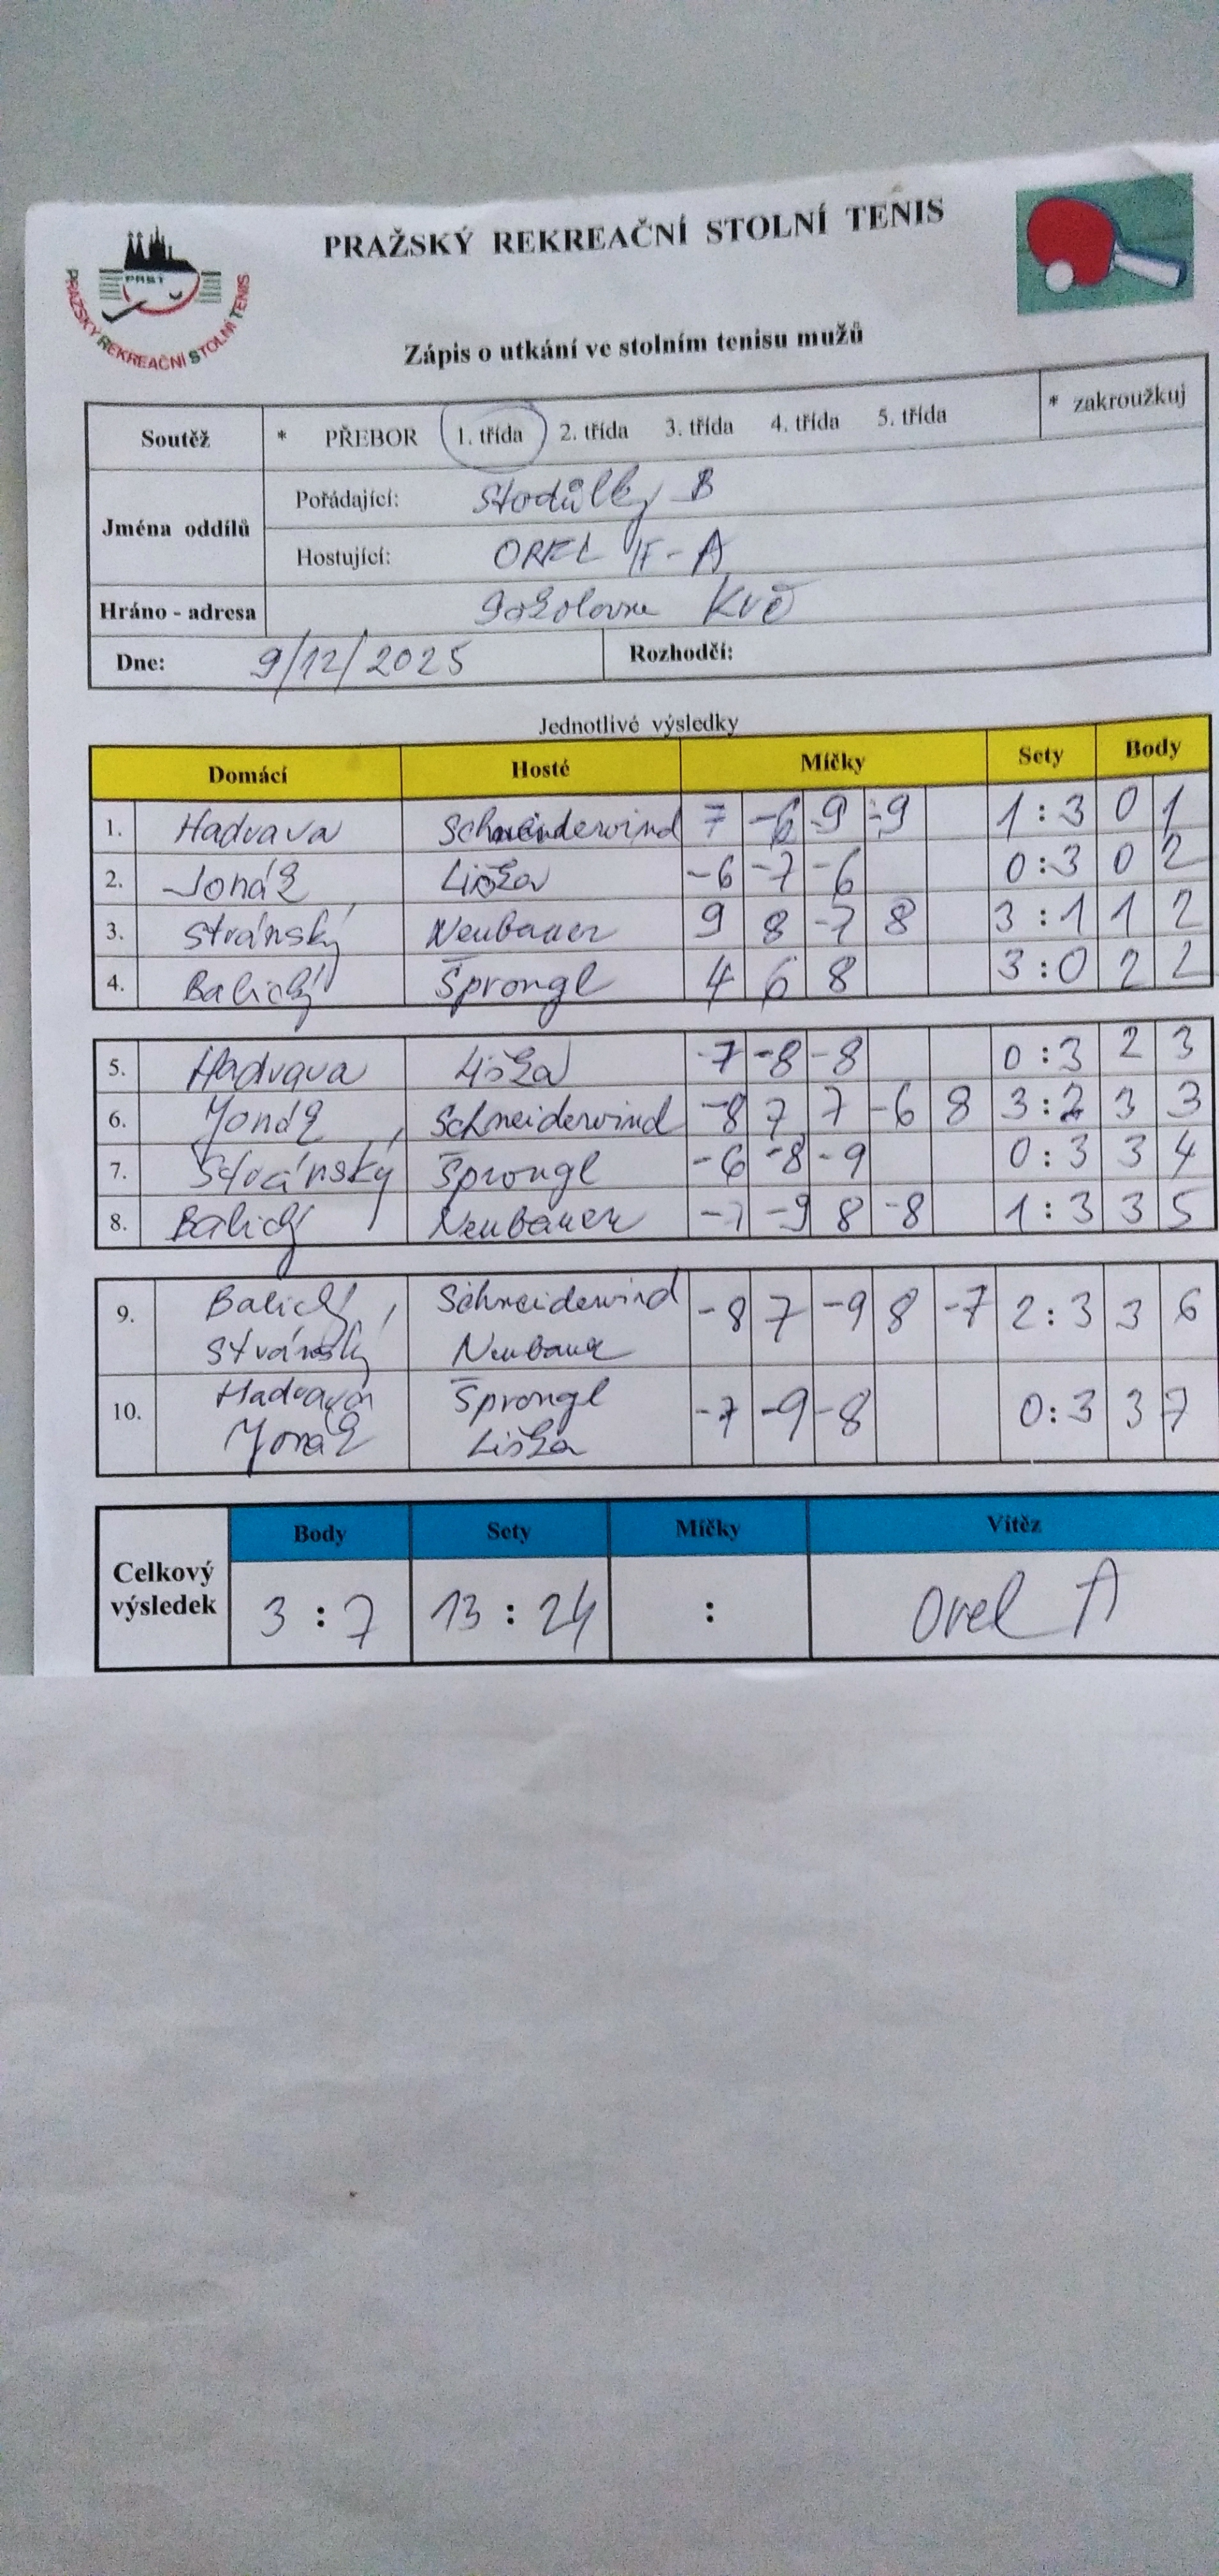 PRAŽSKÝ REKREAČNÍ STOLNÍ TENIS
PRST
PRAŽSKÝ REKREAČNÍ STOLNÍ TENIS
Zápis o utkání ve stolním tenisu mužů
Soutěž * PŘEBOR 1. třída 2. třída 3. třída 4. třída 5. třída * zakroužkuj
Jména oddílů
Pořádající: Stodůlky B
Hostující: OREL A
Hráno - adresa
Dne: 9/12/2025 Rozhodčí:
Jednotlivé výsledky
Domácí Hosté Míčky Sety Body
1. Hadrava Schneiderwind 7 -6 -9 -9 1:3 0 1
2. Jonák Liška -6 -7 -6 0:3 0 2
3. Stránský Neubauer 9 8 -7 8 3:1 1 2
4. Balický Šprongl 4 6 8 3:0 2 2
5. Hadrava Liška -7 -8 -8 0:3 2 3
6. Jonák Schneiderwind -8 7 7 -6 8 3:2 3 3
7. Stránský Šprongl -6 -8 -9 0:3 3 4
8. Balický Neubauer -7 -9 8 -8 1:3 3 5
9. Balický, Schneiderwind -8 7 -9 8 -7 2:3 3 6
Stránský Neubauer
10. Hadrava Šprongl -7 -9 -8 0:3 3 7
Jonák Liška
Celkový výsledek
Body Sety Míčky Vítěz
3 : 7 13 : 24 : Orel A